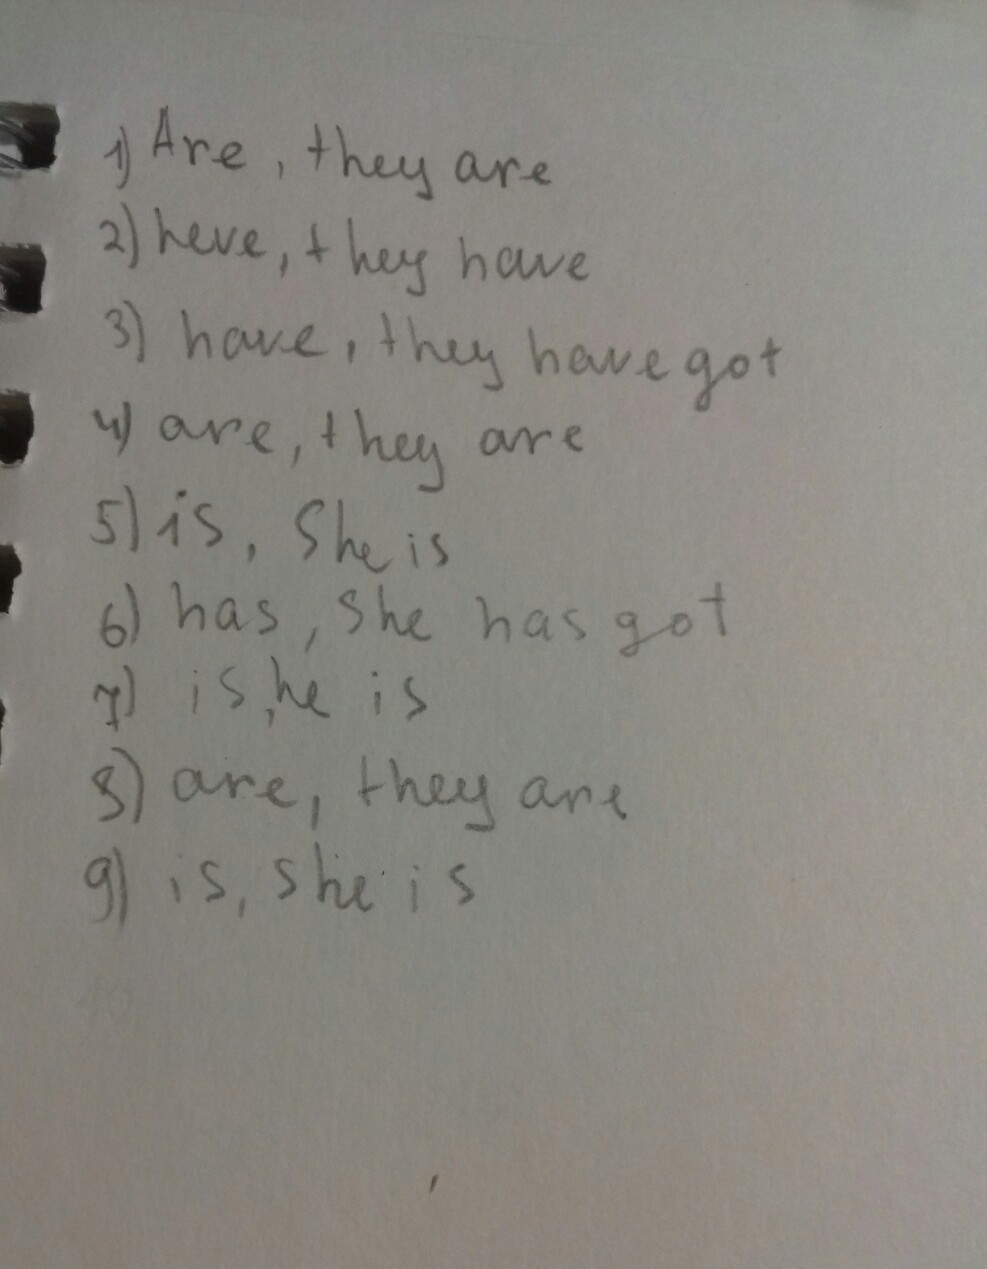 1) Are, they are
2) heve, they have
3) have, they have got
4) are, they are
5) is, She is
6) has, She has got
7) is, he is
8) are, they are
9) is, she is